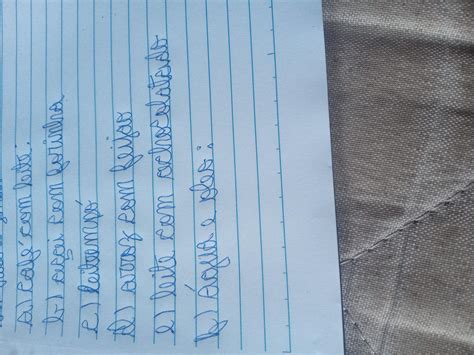 a) café com leite:
b) açaí com farinha
c) leite em pó
d) arroz com feijão
e) leite com achocolatado
f) água e óleo: